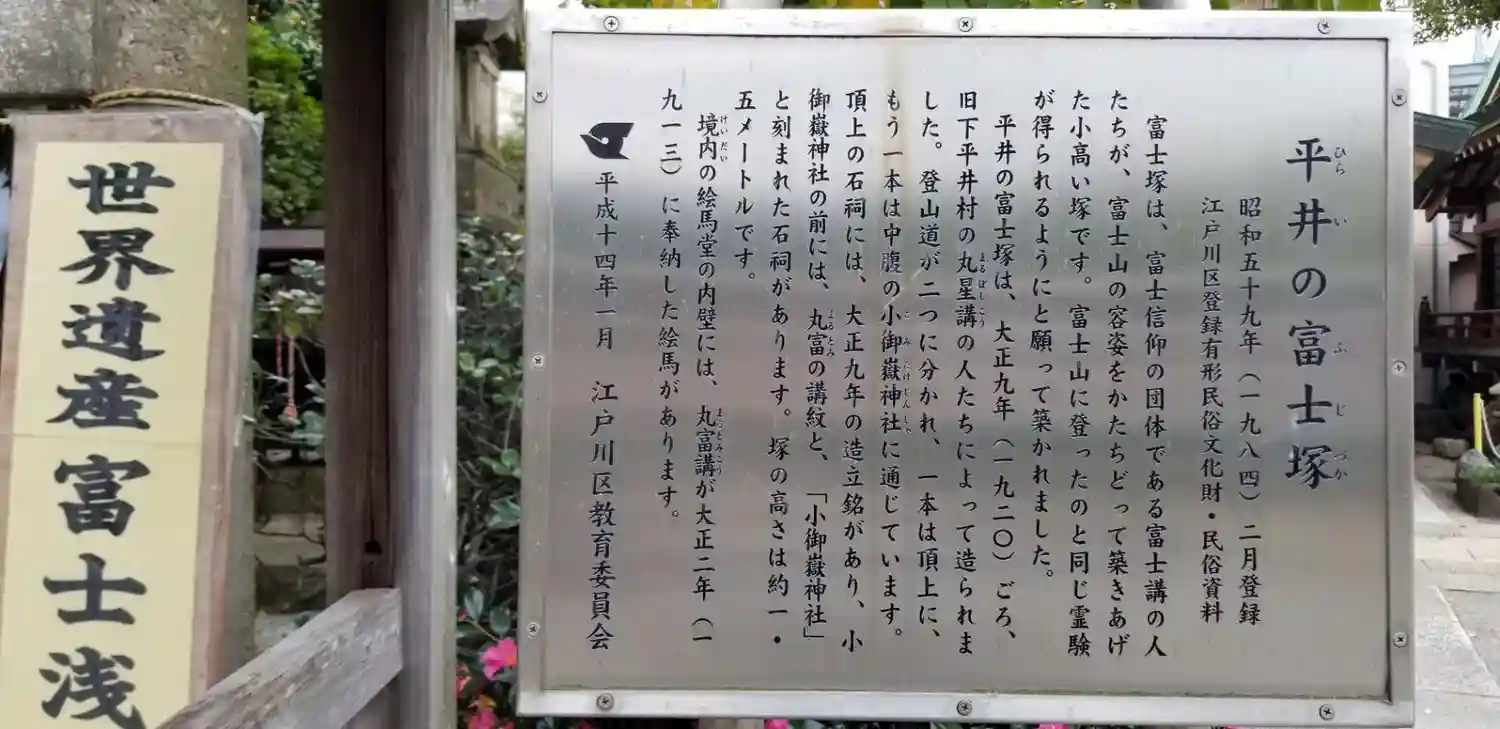 平井の富士塚
昭和五十九年（一九八四）二月登録
江戸川区登録有形民俗文化財・民俗資料
富士塚は、富士信仰の団体である富士講の人
たちが、富士山の容姿をかたちどって築きあげ
た小高い塚です。富士山に登ったのと同じ霊験
が得られるようにと願って築かれました。
平井の富士塚は、大正九年（一九二〇）ごろ、
旧下平井村の丸星講の人たちによって造られま
した。登山道が二つに分かれ、一本は頂上に、
もう一本は中腹の小御嶽神社に通じています。
頂上の石祠には、大正九年の造立銘があり、小
御嶽神社の前には、丸富の講紋と、「小御嶽神社」
と刻まれた石祠があります。塚の高さは約一・
五メートルです。
境内の絵馬堂の内壁には、丸富講が大正二年（一
九一三）に奉納した絵馬があります。
平成十四年一月 江戸川区教育委員会
世界遺産富士浅